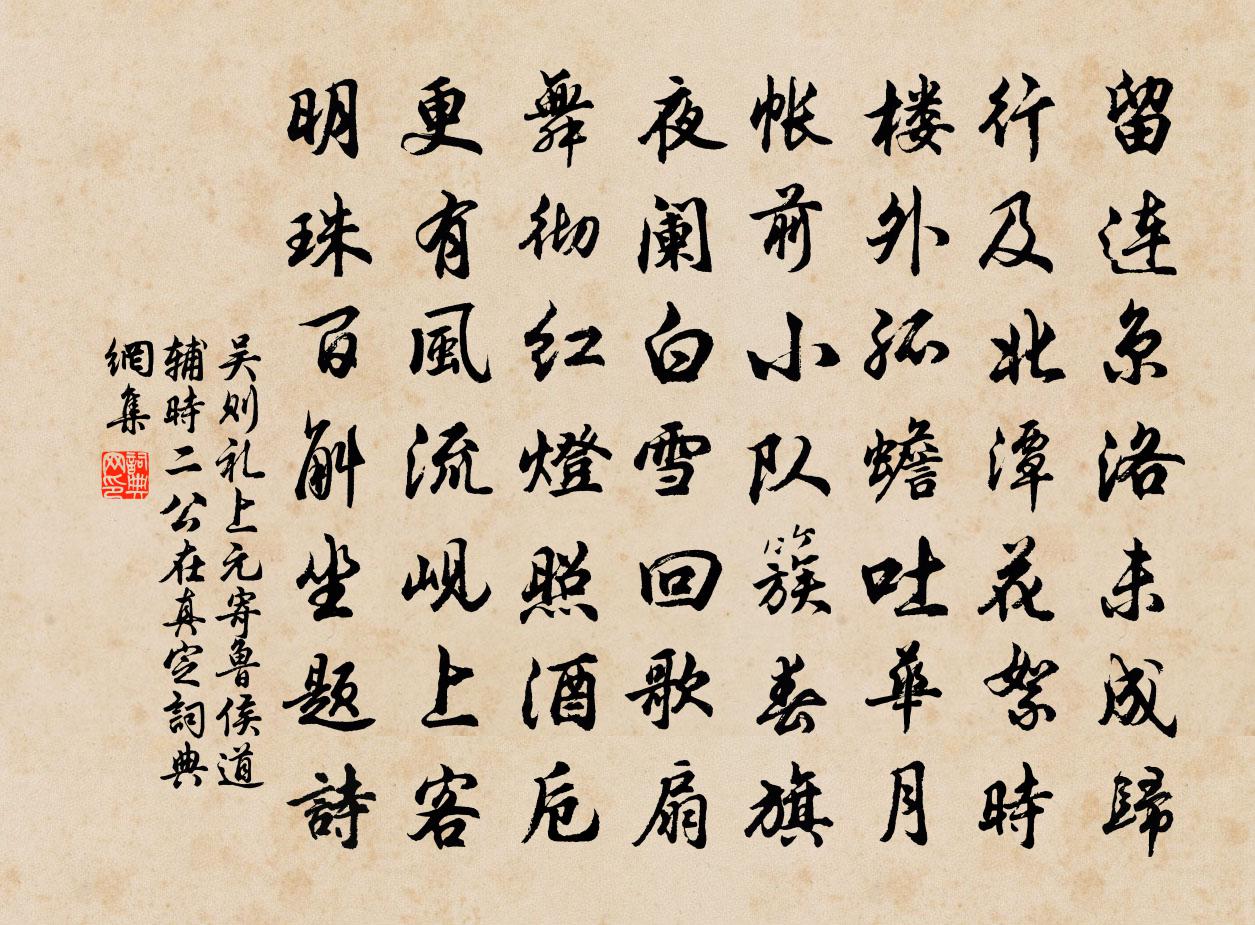 留连京洛未成歸
行及北潭花絮時
楼外孤蟾吐華月
帐前小队簇春旗
夜阑白雪回歌扇
舞彻红燈照酒卮
更有風流岘上客
明珠百斛坐题詩
吴则礼上元寄鲁侯道
辅時二公在真定詞典
網集
詞典網印